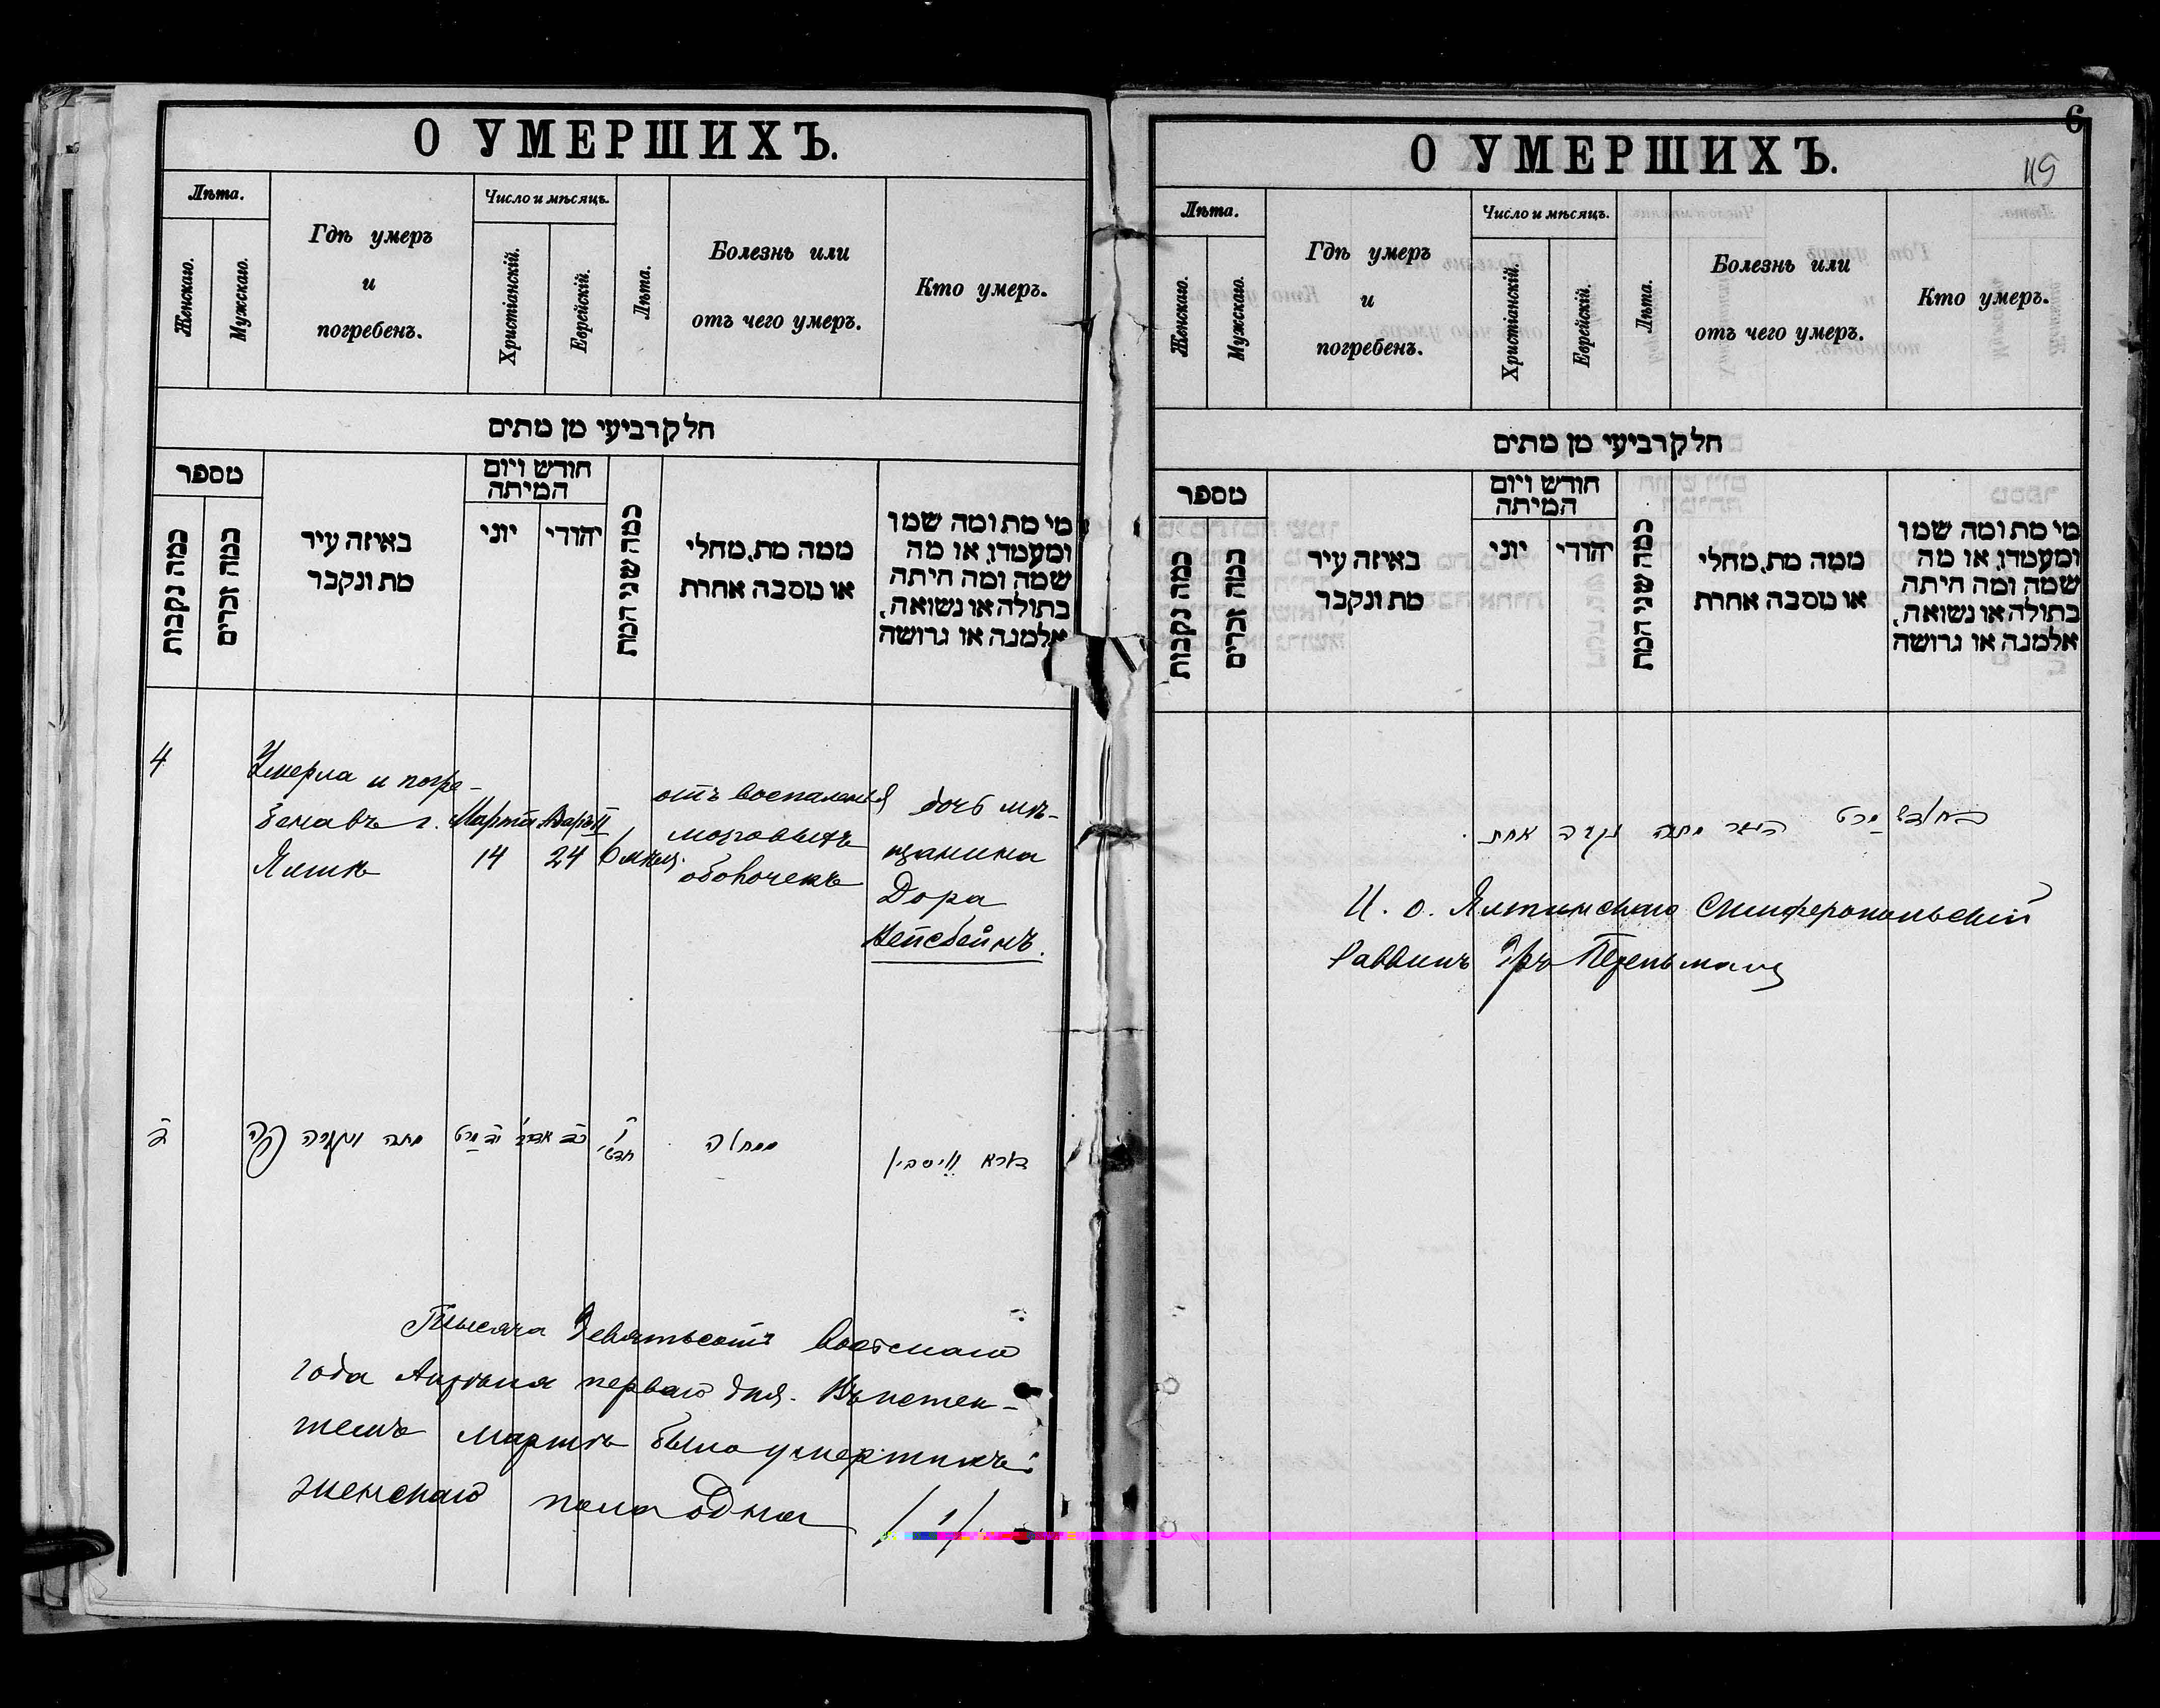 О УМЕРШИХЪ.
Лѣта.
Женскаго.
Мужскаго.
Гдѣ умеръ
и
погребенъ.
Число и мѣсяцъ.
Христіанскій.
Еврейскій.
Лѣта.
Болезнь или
отъ чего умеръ.
Кто умеръ.
חלק רביעי מן מתים
מספר
כמה נקבות
כמה זכרים
באיזה עיר
מת ונקבר
חודש ויום
המיתה
יוני
יהודי
כמה שני המת
ממה מת, מחלי
או מסבה אחרת
מי מת ומה שמו
ומעמדו, או מה
שמה ומה היתה
בתולה או נשואה,
אלמנה או גרושה
4
Умерла и погре-
бена въ г.
Ялтѣ
Марта
14
Адаръ II
24
6 мѣсц.
отъ воспаленія
мозговыхъ
оболочекъ
дочь мѣ-
щанина
Дора
Вейсбейнъ.
מתה ונקברה
יד מרט
כד אדר
ו חדשי
ממחלה
דארא ווייסביין
Тысяча девятьсотъ восьмаго
года Апрѣля перваго дня. Въ истек-
шемъ мартѣ было умершихъ:
женскаго пола одна /1/.
О УМЕРШИХЪ.
6
115
Лѣта.
Женскаго.
Мужскаго.
Гдѣ умеръ
и
погребенъ.
Число и мѣсяцъ.
Христіанскій.
Еврейскій.
Лѣта.
Болезнь или
отъ чего умеръ.
Кто умеръ.
חלק רביעי מן מתים
מספר
כמה נקבות
כמה זכרים
באיזה עיר
מת ונקבר
חודש ויום
המיתה
יוני
יהודי
כמה שני המת
ממה מת, מחלי
או מסבה אחרת
מי מת ומה שמו
ומעמדו, או מה
שמה ומה היתה
בתולה או נשואה,
אלמנה או גרושה
בחודש מרט העבר מתה נקבה אחת.
И. о. Ялтинскаго Симферопольскій
Раввинъ Перельманъ